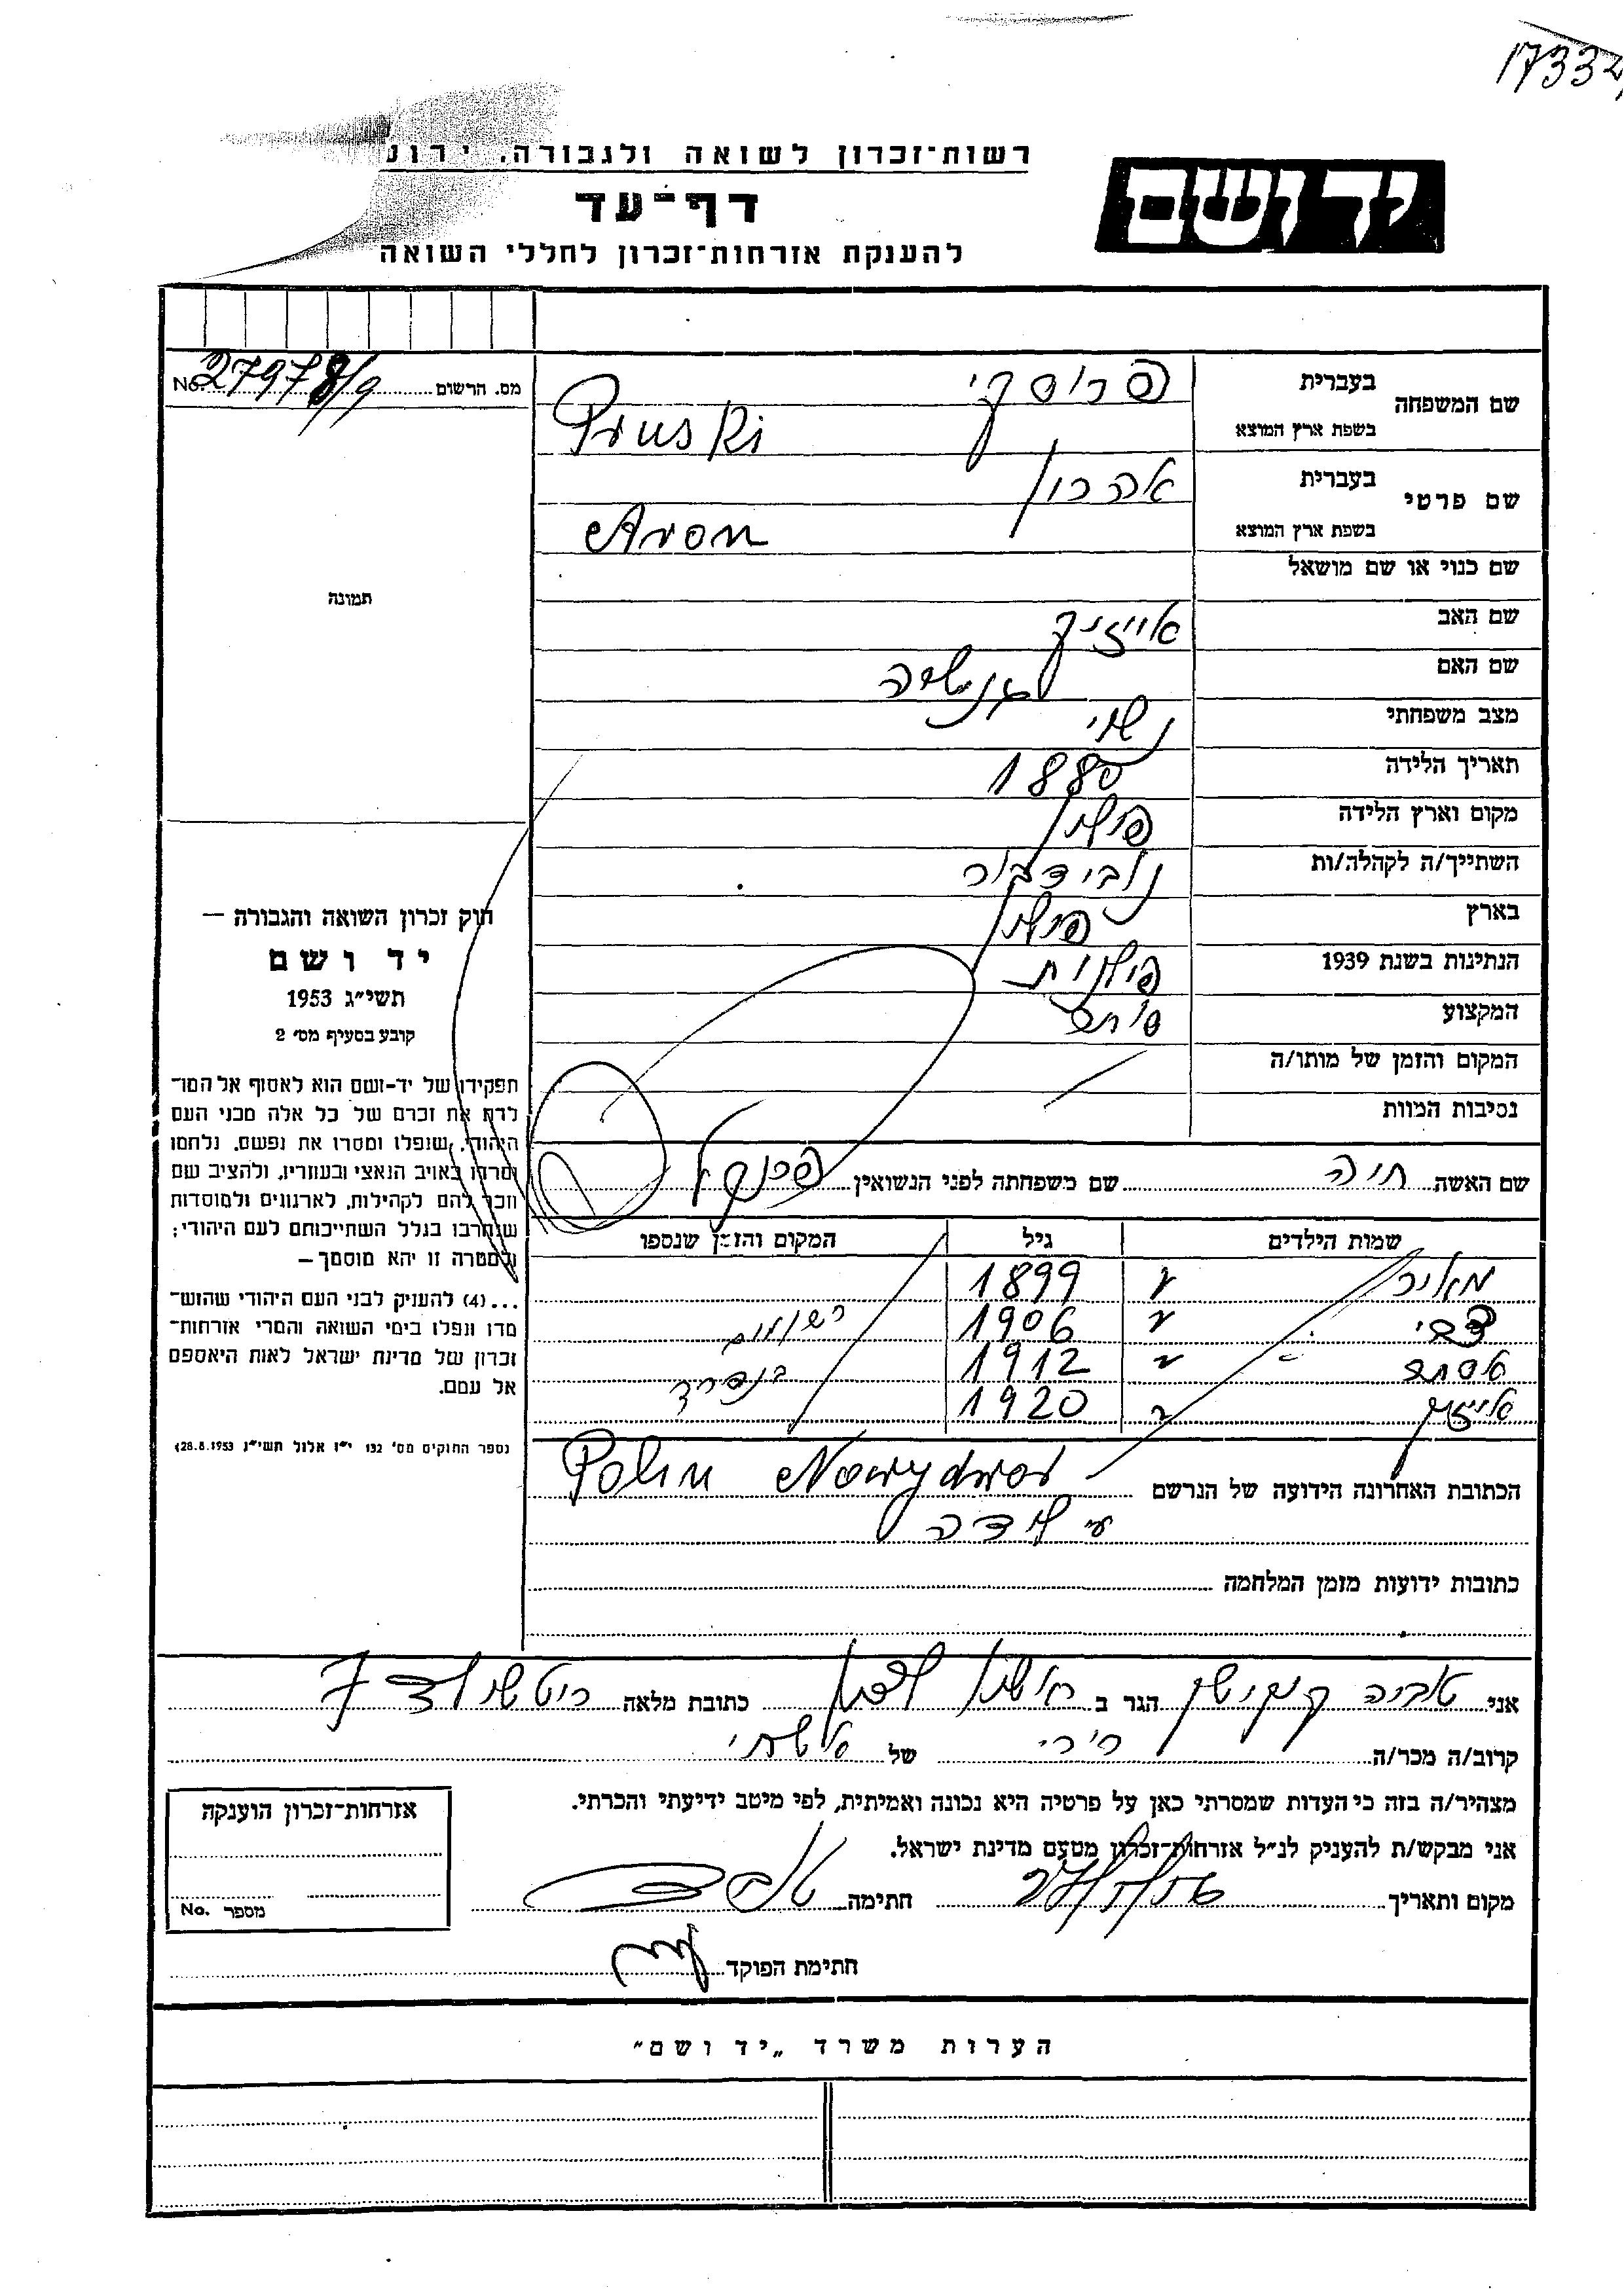 17332
רשות־זכרון לשואה ולגבורה, ירוש
יד ושם
דף־עד
להענקת אזרחות־זכרון לחללי השואה
מס. הרשום No. 27978/9
שם המשפחה
בעברית פרוסקי
בשפת ארץ המוצא Pruski
שם פרטי
בעברית אהרון
בשפת ארץ המוצא Aron
שם כנוי או שם מושאל
שם האב אייזיק
שם האם
מצב משפחתי נשוי
תאריך הלידה 1880
מקום וארץ הלידה פולין
השתייך/ה לקהלה/ות נובידבור
בארץ פולין
הנתינות בשנת 1939 פולנית
המקצוע סוחר
המקום והזמן של מותו/ה
נסיבות המוות
תמונה
חוק זכרון השואה והגבורה —
יד ושם
תשי״ג 1953
קובע בסעיף מס׳ 2
תפקידו של יד-ושם הוא לאסוף אל המו־
לדת את זכרם של כל אלה מבני העם
היהודי, שנפלו ומסרו את נפשם, נלחמו
ומרדו באויב הנאצי ובעוזריו, ולהציב שם
וזכר להם לקהילות, לארגונים ולמוסדות
שנחרבו בגלל השתייכותם לעם היהודי;
ולמטרה זו יהא מוסמך —
...(4) להענין לבני העם היהודי שהוש־
מדו ונפלו בימי השואה והמרי אזרחות־
זכרון של מדינת ישראל לאות היאספם
אל עמם.
(ספר החוקים מס׳ 132 י״ז אלול תשי״ג 28.8.1953)
שם האשה חיה שם משפחתה לפני הנשואין פרנקל
שמות הילדים גיל המקום והזמן שנספו
מאיר 1899
צבי 1906
אסתר 1912
אייזיק 1920
הכתובת האחרונה הידועה של הנרשם Polin Nowydwor
כתובות ידועות מזמן המלחמה
אני טביה הגר ב ראשון לציון כתובת מלאה רוטשילד 7
קרוב/ה מכר/ה של
מצהיר/ה בזה כי העדות שמסרתי כאן על פרטיה היא נכונה ואמיתית, לפי מיטב ידיעתי והכרתי.
אני מבקש/ת להעניק לנ״ל אזרחות־זכרון מטעם מדינת ישראל.
מקום ותאריך חתימה
חתימת הפוקד
אזרחות־זכרון הוענקה
מספר No.
הערות משרד „יד ושם״